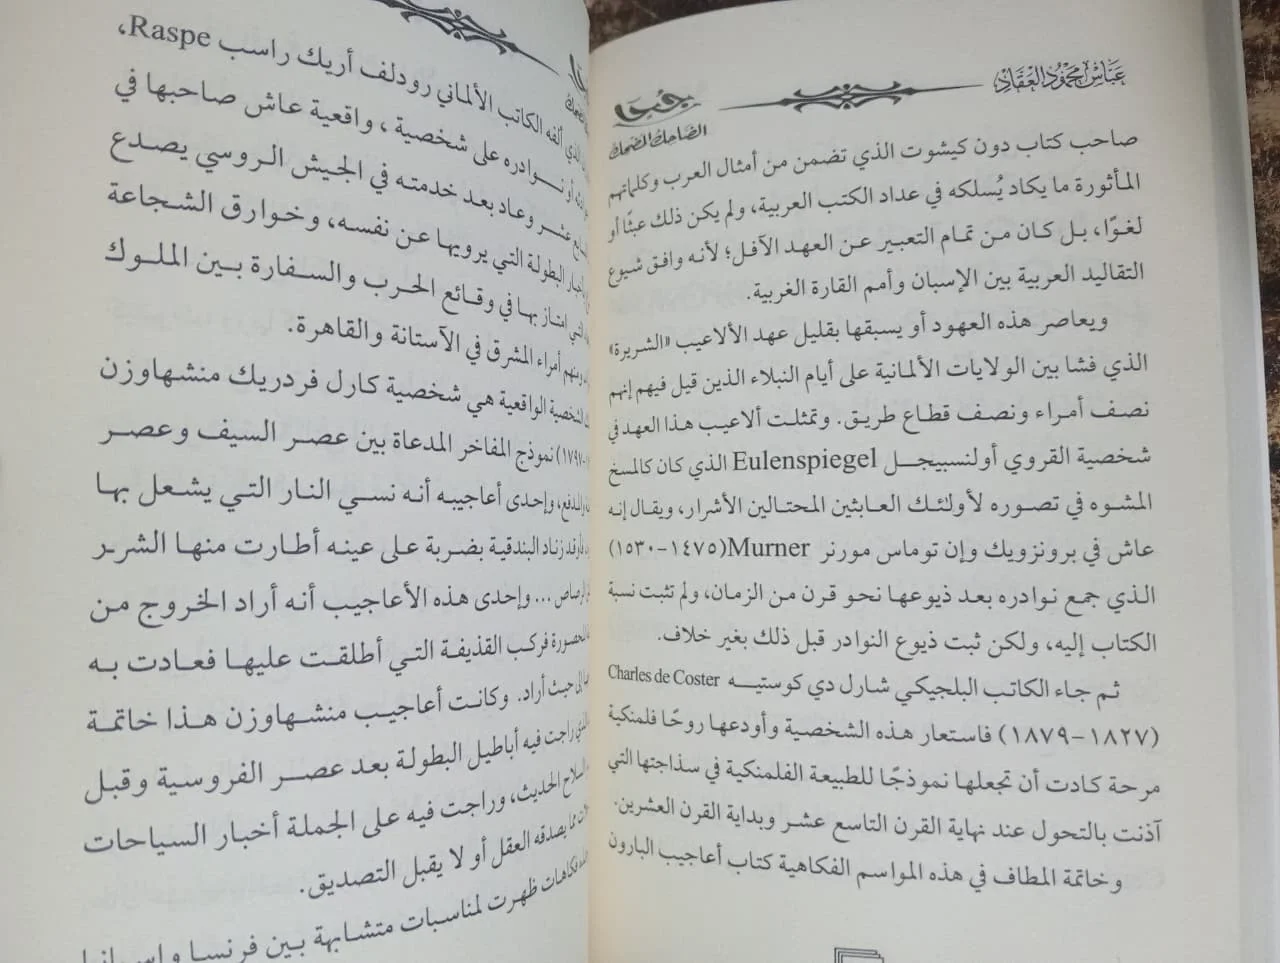 عباس محمود العقاد
جحا
الضاحك المضحك
صاحب كتاب دون كيشوت الذي تضمن من أمثال العرب وكلماتهم
المأثورة ما يكاد يُسلكه في عداد الكتب العربية، ولم يكن ذلك عبثًا أو
لغوًا، بل كان من تمام التعبير عن العهد الآفل؛ لأنه وافق شيوع
التقاليد العربية بين الإسبان وأمم القارة الغربية.
ويعاصر هذه العهود أو يسبقها بقليل عهد الألاعيب «الشريرة»
الذي فشا بين الولايات الألمانية على أيام النبلاء الذين قيل فيهم إنهم
نصف أمراء ونصف قطاع طريق. وتمثلت ألاعيب هذا العهد في
شخصية القروي أولنسبيجل Eulenspiegel الذي كان كالمسخ
المشوه في تصوره لأولئك العابثين المحتالين الأشرار، ويقال إنه
عاش في برونزويك وإن توماس مورنر Murner (١٤٧٥-١٥٣٠)
الذي جمع نوادره بعد ذيوعها نحو قرن من الزمان، ولم تثبت نسبة
الكتاب إليه، ولكن ثبت ذيوع النوادر قبل ذلك بغير خلاف.
ثم جاء الكاتب البلجيكي شارل دي كوستيه Charles de Coster
(١٨٢٧-١٨٧٩) فاستعار هذه الشخصية وأودعها روحًا فلمنكية
مرحة كادت أن تجعلها نموذجًا للطبيعة الفلمنكية في سذاجتها التي
آذنت بالتحول عند نهاية القرن التاسع عشر وبداية القرن العشرين.
وخاتمة المطاف في هذه المواسم الفكاهية كتاب أعاجيب البارون
الذي ألفه الكاتب الألماني رودلف أريك راسب Raspe،
نوادره على شخصية، واقعية عاش صاحبها في
عشر وعاد بعد خدمته في الجيش الروسي يصدع
البطولة التي يرويها عن نفسه، وخوارق الشجاعة
التي امتاز بها في وقائع الحرب والسفارة بين الملوك
ومنهم أمراء المشرق في الآستانة والقاهرة.
الشخصية الواقعية هي شخصية كارل فردريك منشهاوزن
١٧٩٧) نموذج المفاخر المدعاة بين عصر السيف وعصر
وإحدى أعاجيبه أنه نسي النار التي يشعل بها
زناد البندقية بضربة على عينه أطارت منها الشرر
الرصاص ... وإحدى هذه الأعاجيب أنه أراد الخروج من
فركب القذيفة التي أطلقت عليها فعادت به
إلى حيث أراد. وكانت أعاجيب منشهاوزن هذا خاتمة
راجت فيه أباطيل البطولة بعد عصر الفروسية وقبل
السلاح الحديث، وراجت فيه على الجملة أخبار السياحات
مما يصدقه العقل أو لا يقبل التصديق.
فكاهات ظهرت لمناسبات متشابهة بين فرنسا وإسبانيا